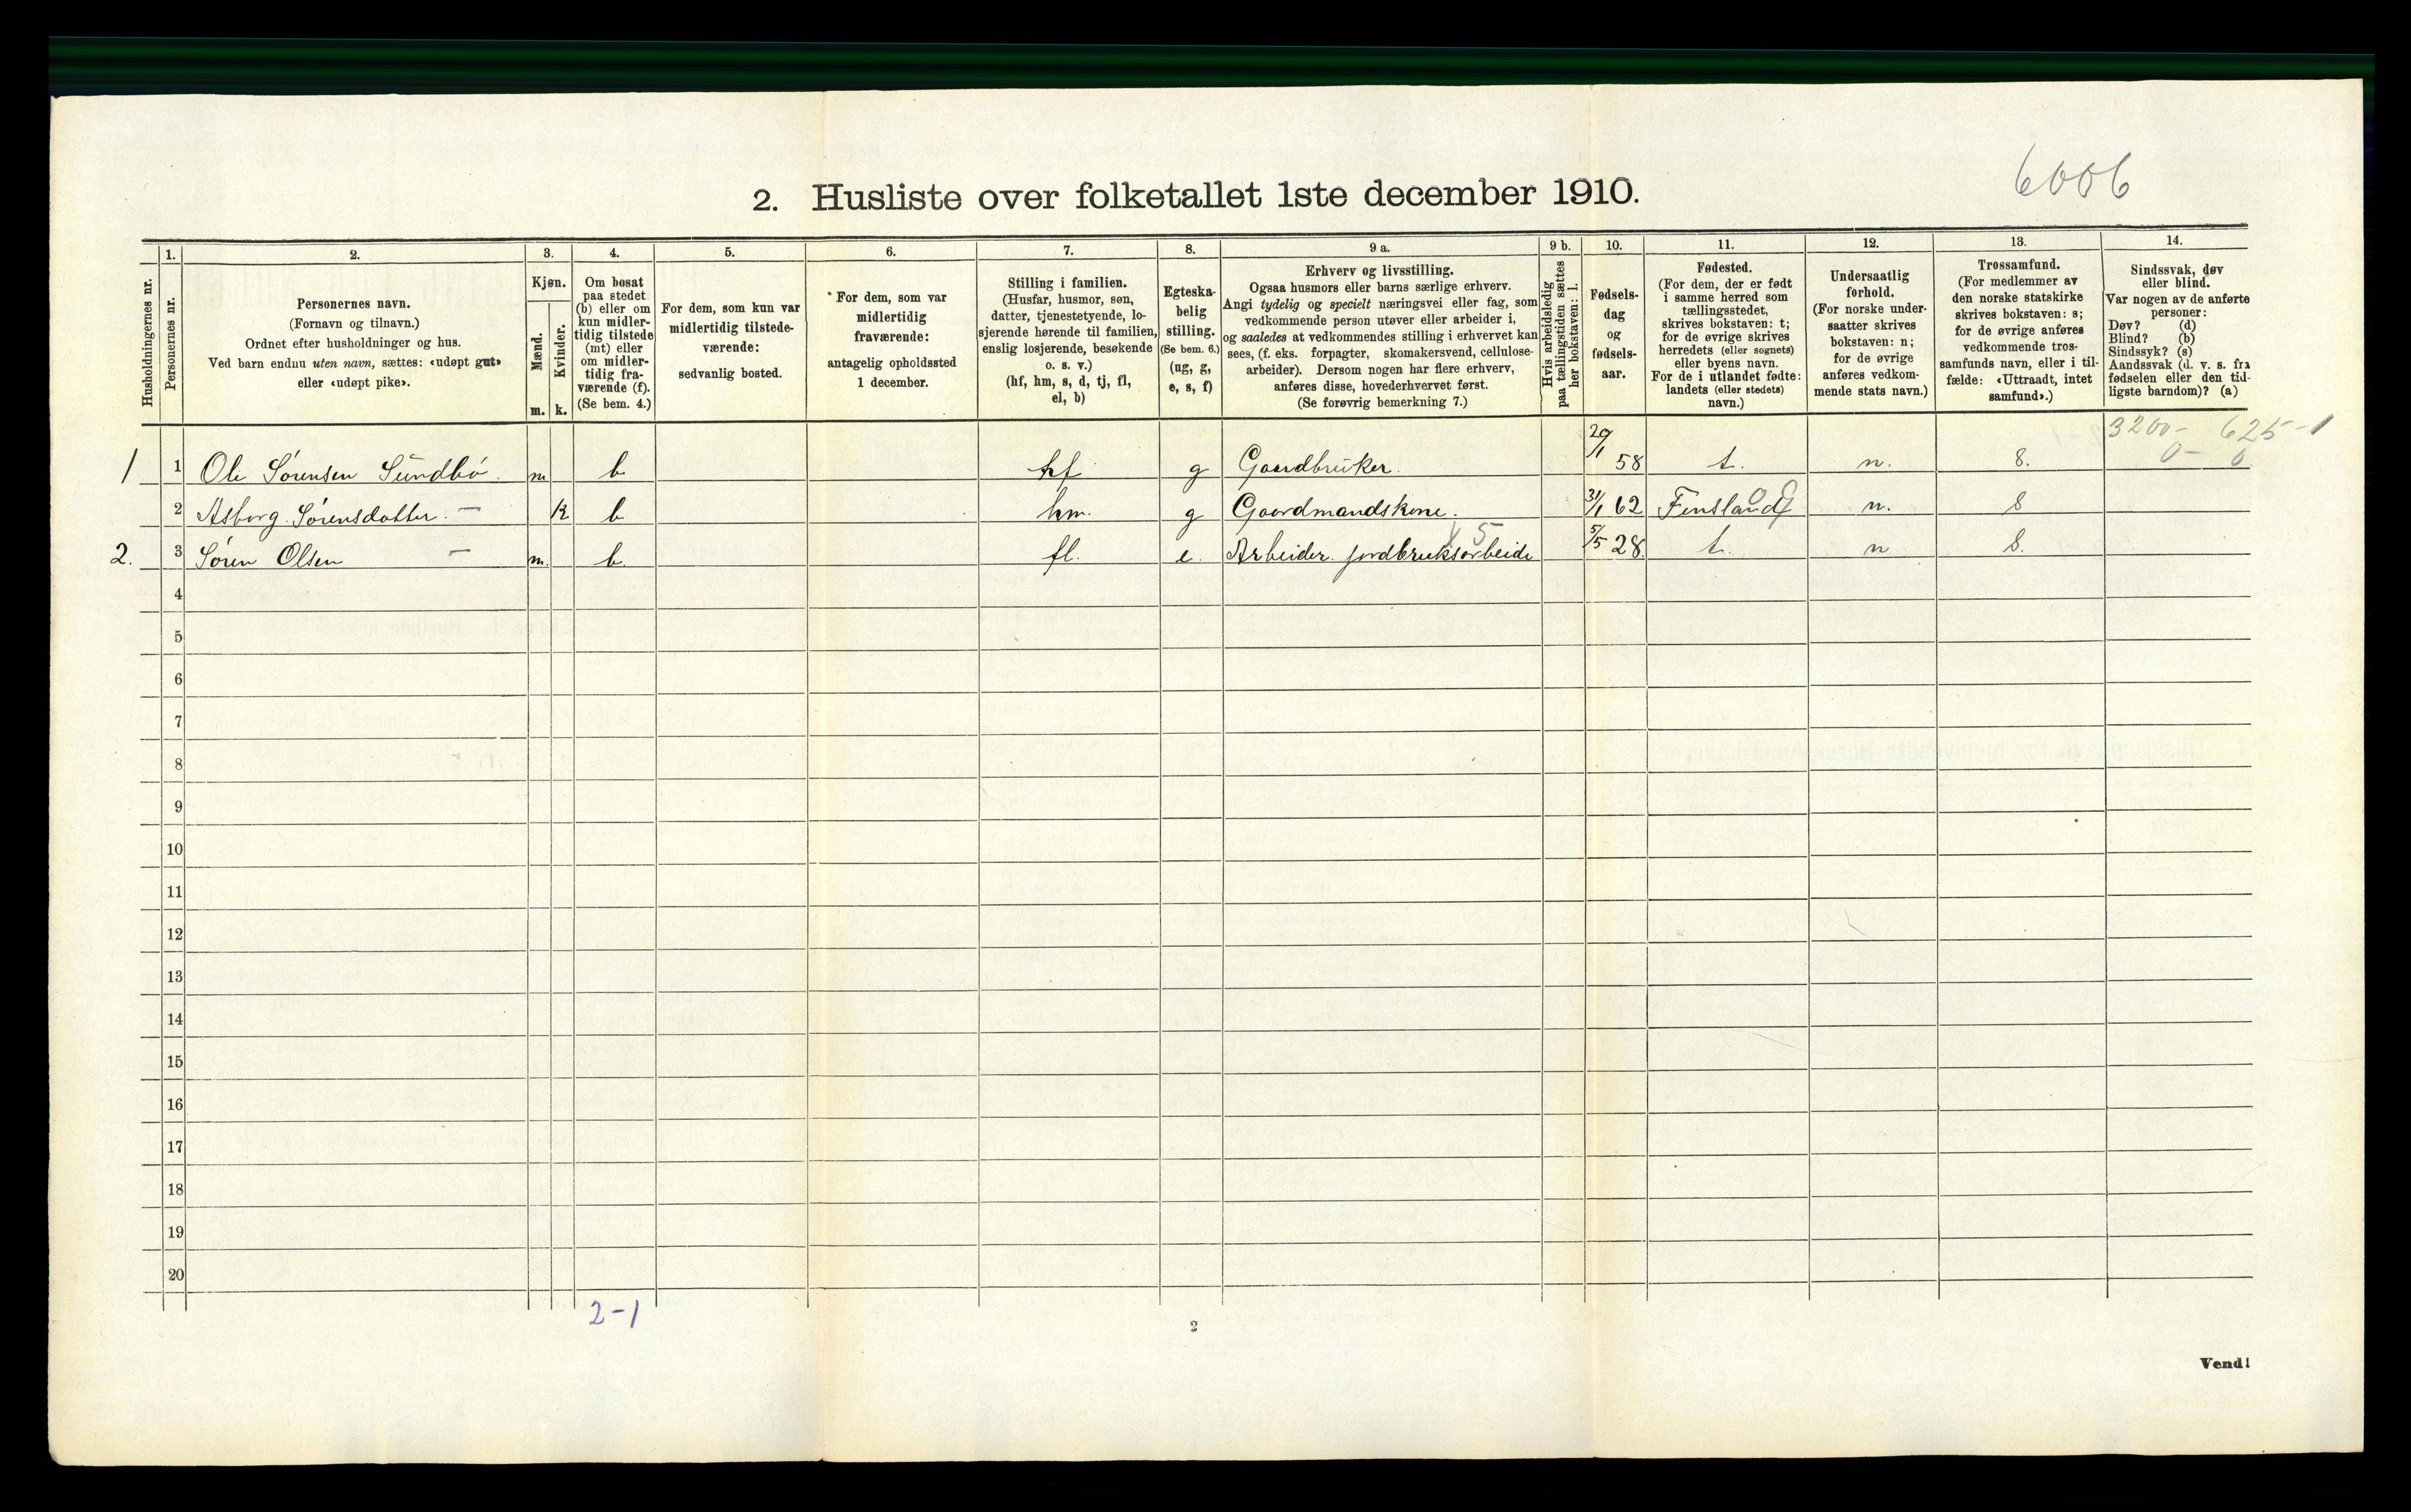 6006
2. Husliste over folketallet 1ste december 1910.
Husholdningernes nr.
1.
Personernes nr.
2.
Personernes navn.
(Fornavn og tilnavn.)
Ordnet efter husholdninger og hus.
Ved barn endnu uten navn, sættes: «udøpt gut»
eller «udøpt pike».
3.
Kjøn.
Mænd.
Kvinder.
m. k.
4.
Om bosat
paa stedet
(b) eller om
kun midler-
tidig tilstede
(mt) eller
om midler-
tidig fra-
værende (f).
(Se bem. 4.)
5.
For dem, som kun var
midlertidig tilstede-
værende:
sedvanlig bosted.
6.
For dem, som var
midlertidig
fraværende:
antagelig opholdssted
1 december.
7.
Stilling i familien.
(Husfar, husmor, søn,
datter, tjenestetyende, lo-
sjerende hørende til familien,
enslig losjerende, besøkende
o. s. v.)
(hf, hm, s, d, tj, fl,
el, b)
8.
Egteska-
belig
stilling.
(Se bem. 6.)
(ug, g,
e, s, f)
9 a.
Erhverv og livsstilling.
Ogsaa husmors eller barns særlige erhverv.
Angi tydelig og specielt næringsvei eller fag, som
vedkommende person utøver eller arbeider i,
og saaledes at vedkommendes stilling i erhvervet kan
sees, (f. eks. forpagter, skomakersvend, cellulose-
arbeider). Dersom nogen har flere erhverv,
anføres disse, hovederhvervet først.
(Se forøvrig bemerkning 7.)
9 b.
Hvis arbeidsledig
paa tællingstiden sættes
her bokstaven: l.
10.
Fødsels-
dag
og
fødsels-
aar.
11.
Fødested.
(For dem, der er født
i samme herred som
tællingsstedet,
skrives bokstaven: t;
for de øvrige skrives
herredets (eller sognets)
eller byens navn.
For de i utlandet fødte:
landets (eller stedets)
navn.)
12.
Undersaatlig
forhold.
(For norske under-
saatter skrives
bokstaven: n;
for de øvrige
anføres vedkom-
mende stats navn.)
13.
Trossamfund.
(For medlemmer av
den norske statskirke
skrives bokstaven: s;
for de øvrige anføres
vedkommende tros-
samfunds navn, eller i til-
fælde: «Uttraadt, intet
samfund».)
14.
Sindssvak, døv
eller blind.
Var nogen av de anførte
personer:
Døv? (d)
Blind? (b)
Sindssyk? (s)
Aandssvak (d. v. s. fra
fødselen eller den tid-
ligste barndom)? (a)
3200- 625-1
0- 0
1 1 Ole Sørensen Sundbø. m b hf g Gaardbruker. 29/1 58 t. n. s.
2 Asborg Sørensdotter. — k b hm. g Gaardmandskone. 31/1 62 Finsland n. s
x 5
2. 3 Søren Olsen — m. b. fl. e. Arbeider jordbruksarbeide 5/5 28. t. n s.
4
5
6
7
8
9
10
11
12
13
14
15
16
17
18
19
20
2-1
2
Vend!